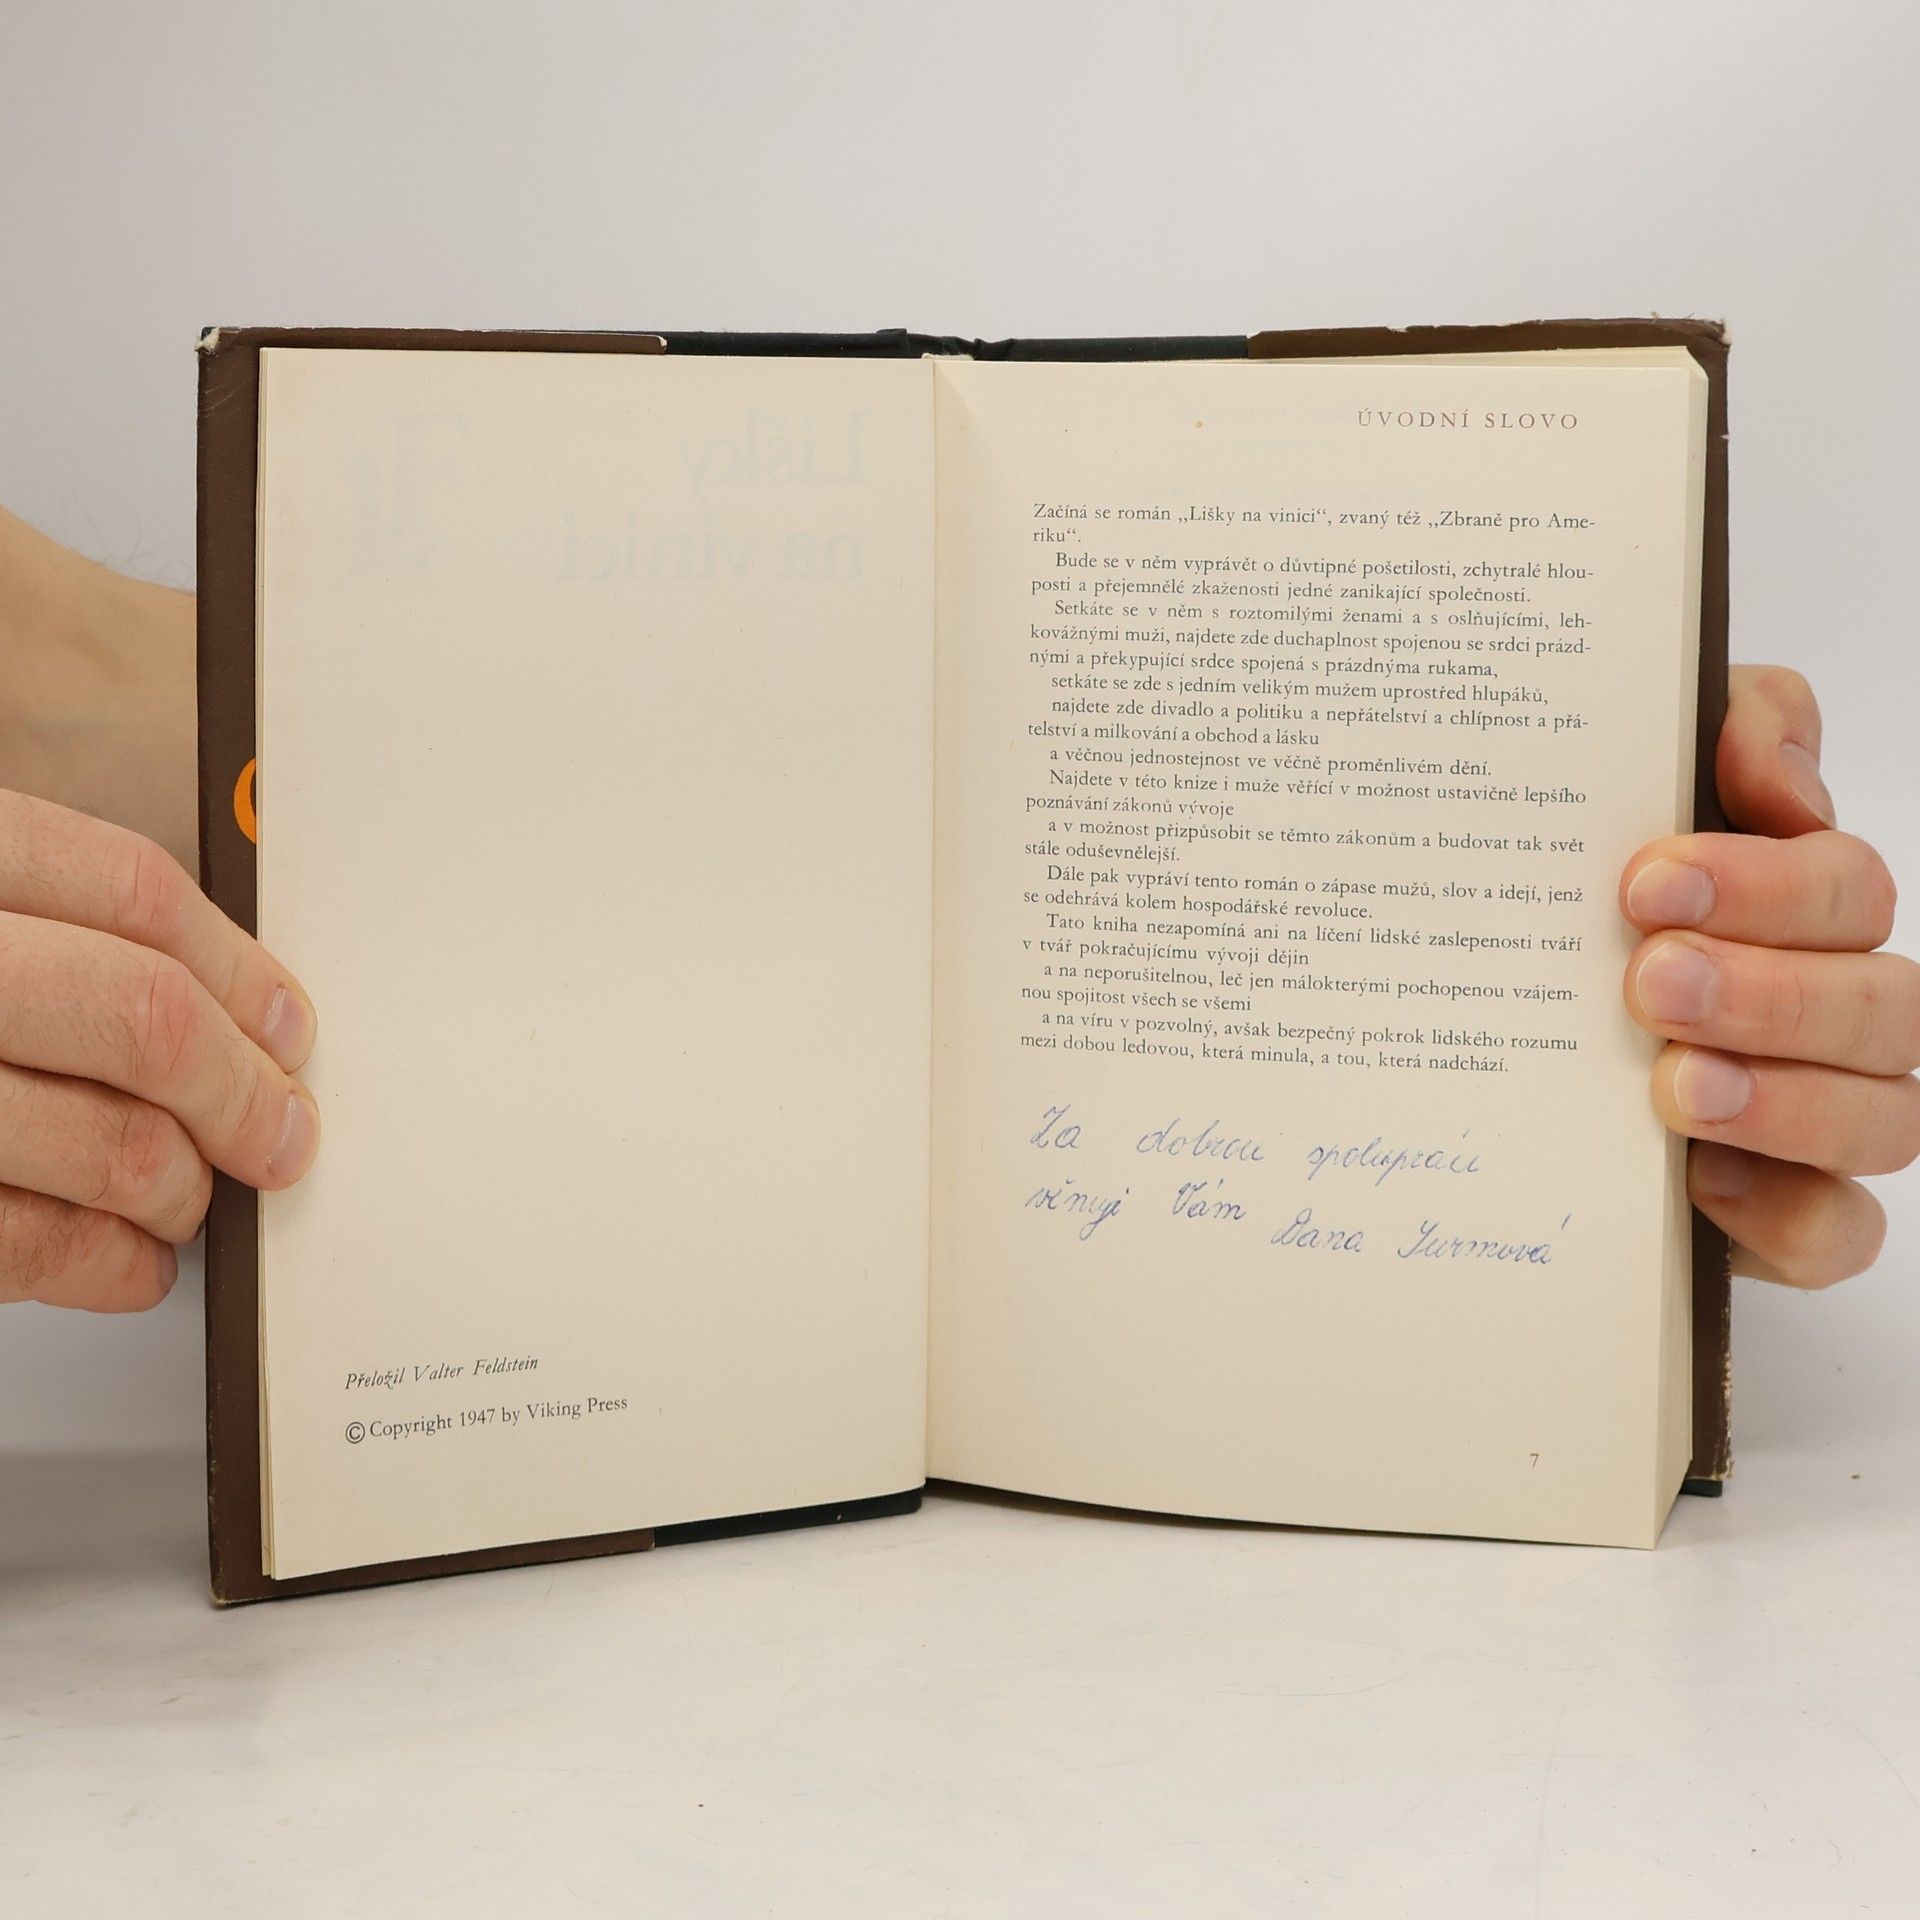 Přeložil Valter Feldstein
© Copyright 1947 by Viking Press
ÚVODNÍ SLOVO
Začíná se román „Lišky na vinici“, zvaný též „Zbraně pro Ame-
riku“.
Bude se v něm vyprávět o důvtipné pošetilosti, zchytralé hlou-
posti a přejemnělé zkaženosti jedné zanikající společnosti.
Setkáte se v něm s roztomilými ženami a s oslňujícími, leh-
kovážnými muži, najdete zde duchaplnost spojenou se srdci prázd-
nými a překypující srdce spojená s prázdnýma rukama,
setkáte se zde s jedním velikým mužem uprostřed hlupáků,
najdete zde divadlo a politiku a nepřátelství a chlípnost a přá-
telství a milkování a obchod a lásku
a věčnou jednostejnost ve věčně proměnlivém dění.
Najdete v této knize i muže věřící v možnost ustavičně lepšího
poznávání zákonů vývoje
a v možnost přizpůsobit se těmto zákonům a budovat tak svět
stále oduševnělejší.
Dále pak vypráví tento román o zápase mužů, slov a idejí, jenž
se odehrává kolem hospodářské revoluce.
Tato kniha nezapomíná ani na líčení lidské zaslepenosti tváří
v tvář pokračujícímu vývoji dějin
a na neporušitelnou, leč jen málokterými pochopenou vzájem-
nou spojitost všech se všemi
a na víru v pozvolný, avšak bezpečný pokrok lidského rozumu
mezi dobou ledovou, která minula, a tou, která nadchází.
Za dobrou spolupráci
věnuji Vám
Dana
7